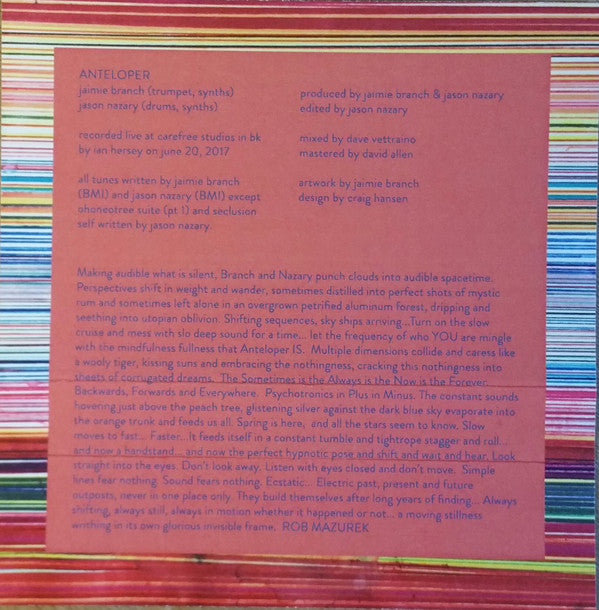 ANTELOPER
jaimie branch (trumpet, synths)
jason nazary (drums, synths)
recorded live at carefree studios in bk
by ian hersey on june 20, 2017
all tunes written by jaimie branch
(BMI) and jason nazary (BMI) except
ohoneotree suite (pt 1) and seclusion
self written by jason nazary.
produced by jaimie branch & jason nazary
edited by jason nazary
mixed by dave vettraino
mastered by david allen
artwork by jaimie branch
design by craig hansen
Making audible what is silent, Branch and Nazary punch clouds into audible spacetime.
Perspectives shift in weight and wander, sometimes distilled into perfect shots of mystic
rum and sometimes left alone in an overgrown petrified aluminum forest, dripping and
seething into utopian oblivion. Shifting sequences, sky ships arriving...Turn on the slow
cruise and mess with slo deep sound for a time... let the frequency of who YOU are mingle
with the mindfulness fullness that Anteloper IS. Multiple dimensions collide and caress like
a wooly tiger, kissing suns and embracing the nothingness, cracking this nothingness into
sheets of corrugated dreams. The Sometimes is the Always is the Now is the Forever.
Backwards, Forwards and Everywhere. Psychotronics in Plus in Minus. The constant sounds
hovering just above the peach tree, glistening silver against the dark blue sky evaporate into
the orange trunk and feeds us all. Spring is here, and all the stars seem to know. Slow
moves to fast... Faster... It feeds itself in a constant tumble and tightrope stagger and roll...
and now a handstand... and now the perfect hypnotic pose and shift and wait and hear. Look
straight into the eyes. Don't look away. Listen with eyes closed and don't move. Simple
lines fear nothing. Sound fears nothing. Ecstatic... Electric past, present and future
outposts, never in one place only. They build themselves after long years of finding... Always
shifting, always still, always in motion whether it happened or not... a moving stillness
writhing in its own glorious invisible frame. ROB MAZUREK